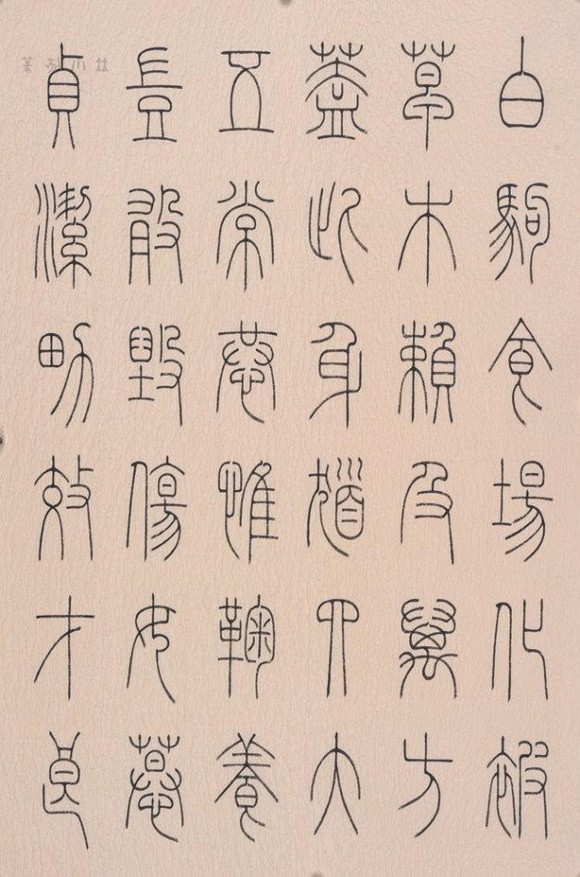 白駒食場化被
草木賴及萬方
蓋此身髮四大
五常恭惟鞠養
豈敢毀傷女慕
貞潔男效才良